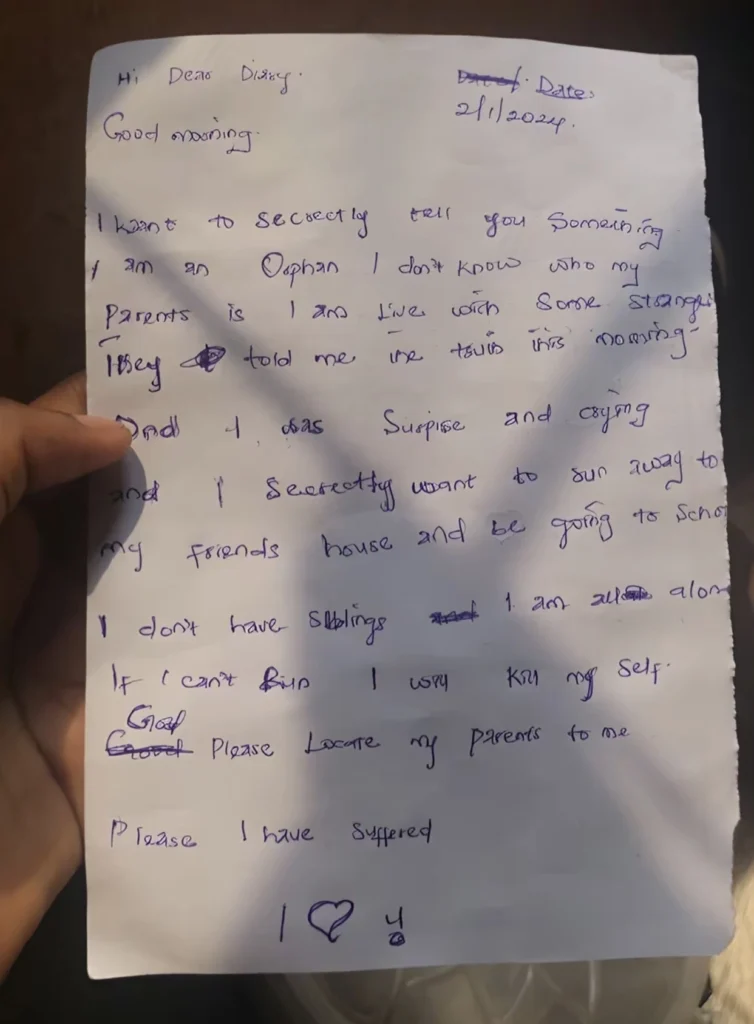 Hi Dear Diary.
Date:
2/1/2024.
Good morning.
I want to secrectly tell you Something
I am an Orphan I don't know who my
Parents is I am Live with Some
They told me the truth this morning
Dad I was Surpise and crying
and I Secrectly want to run away to
my friends house and be going to
I don't have Siblings I am
If I can't Run I will Kill my Self.
God Please Locate my parents to me
Please I have Suffered
I ♡ U